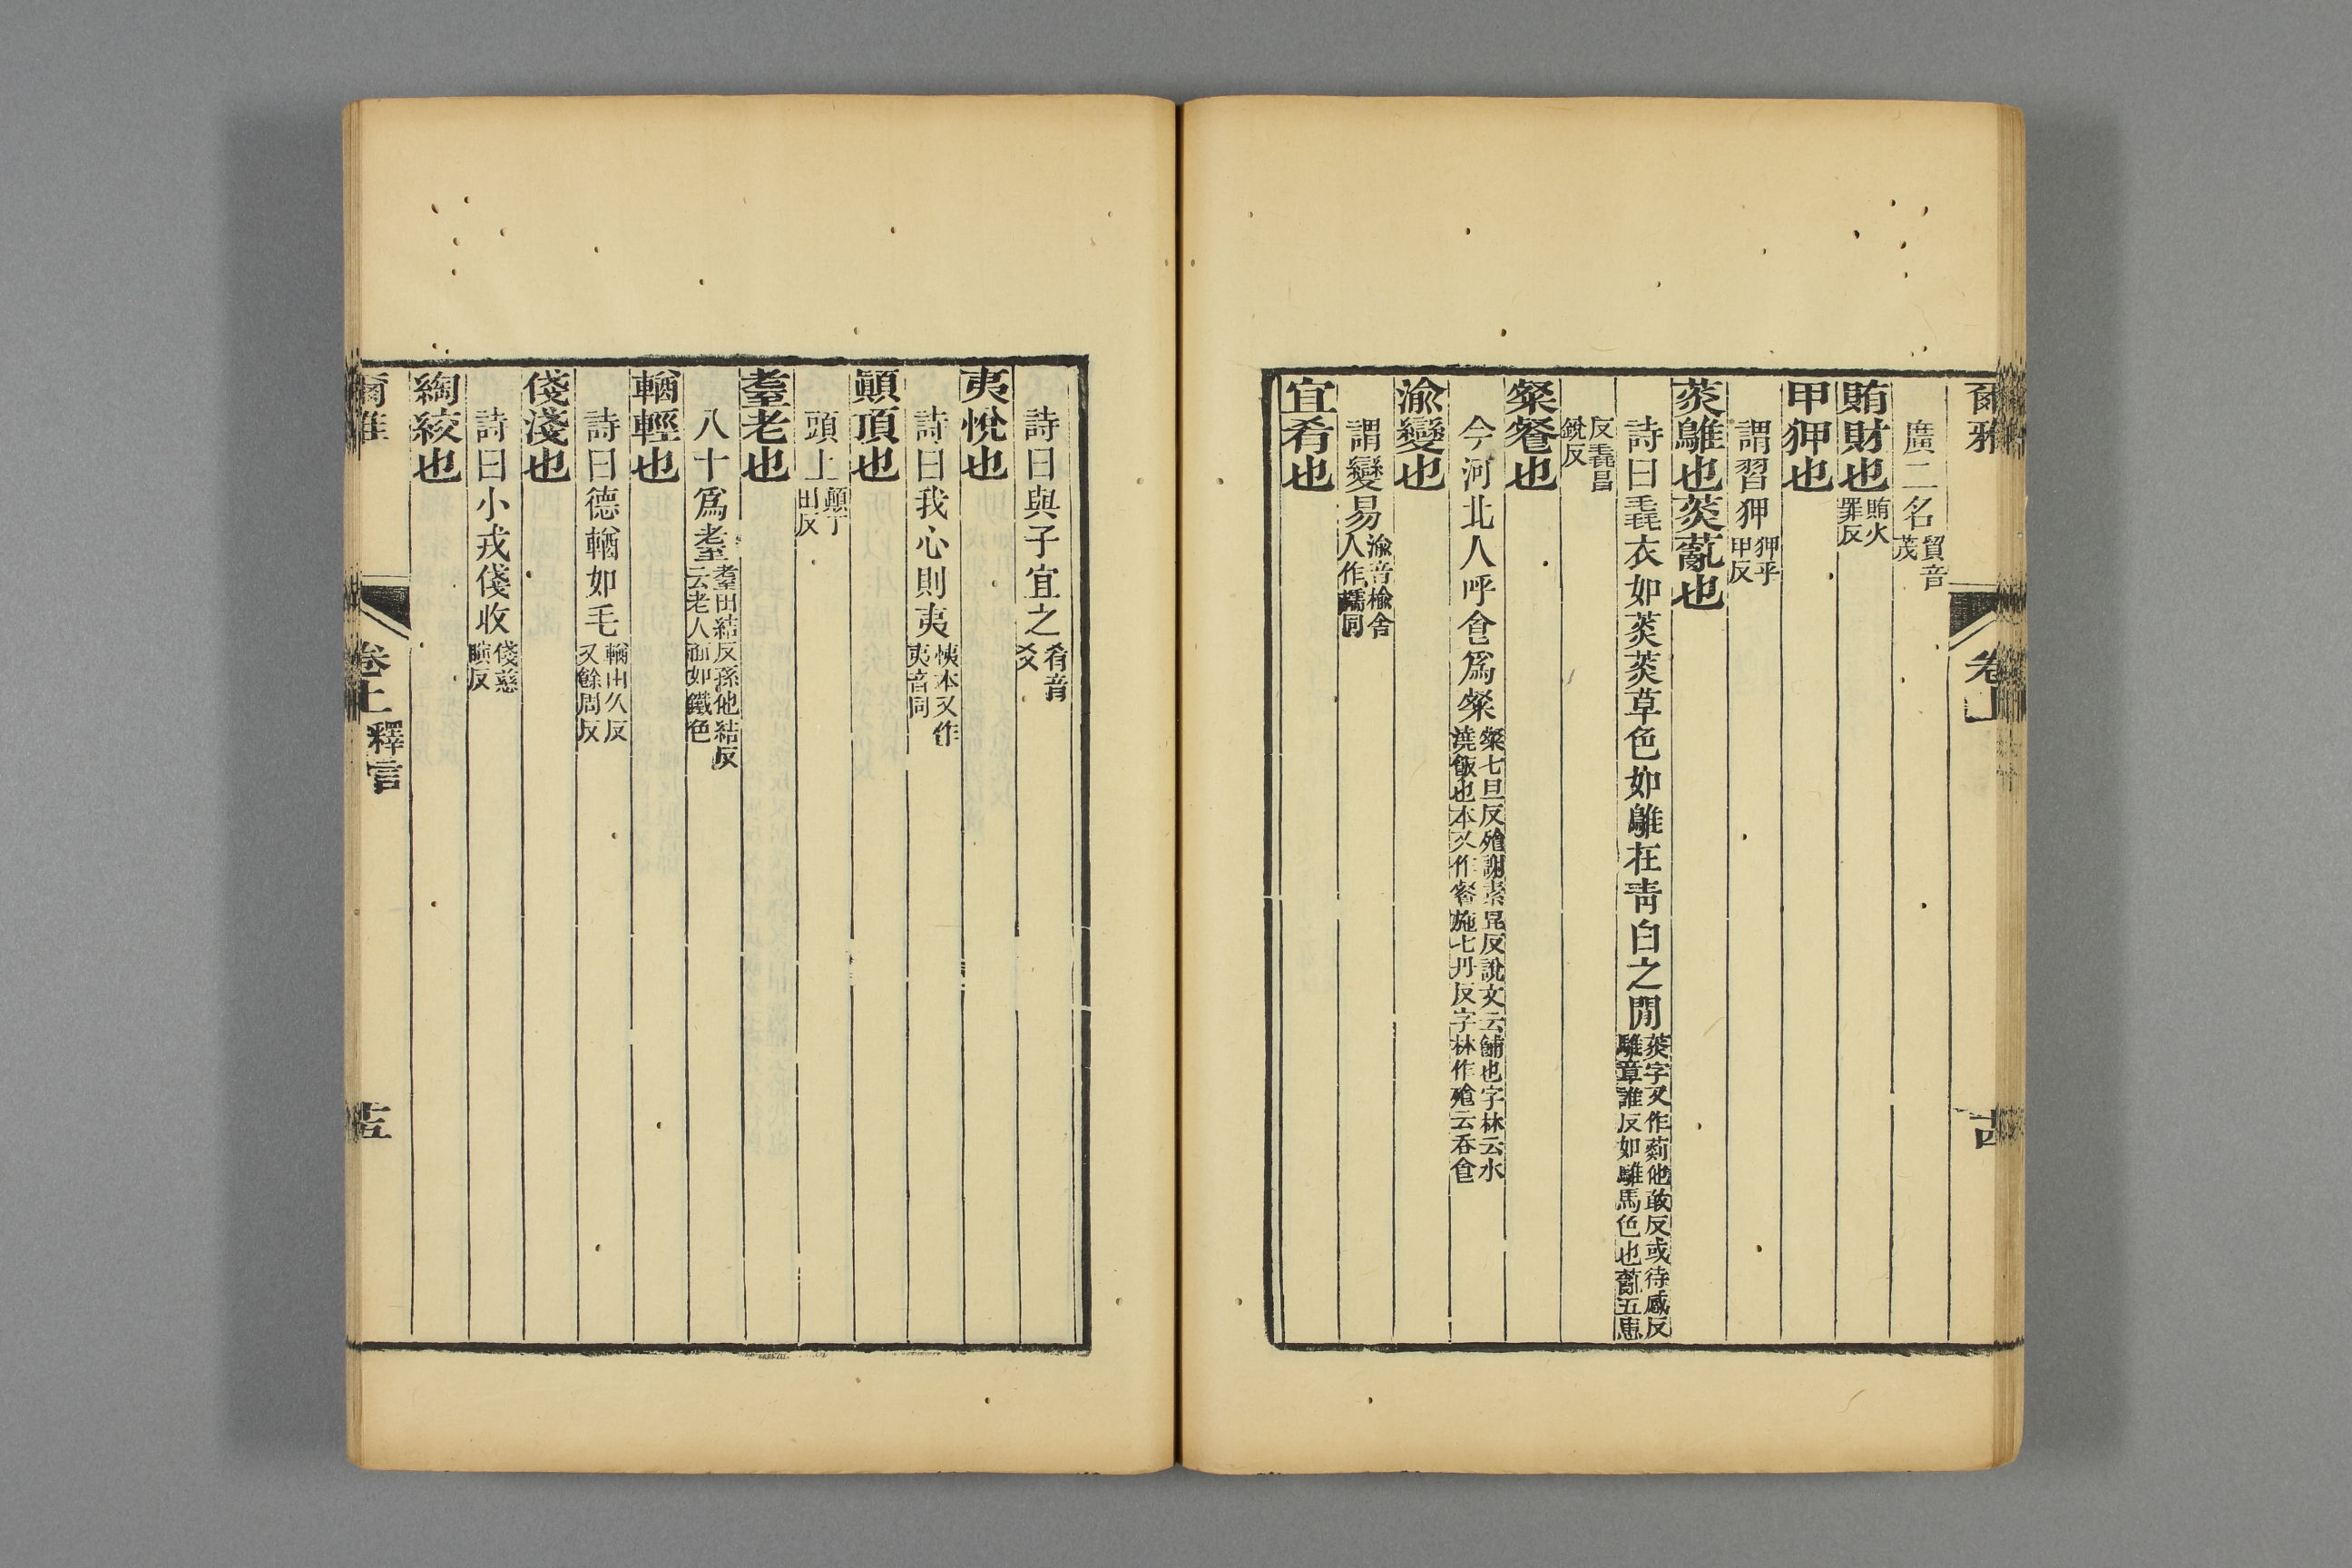 爾雅 卷上 十四
廣二名貿音茂
賄財也賄火罪反
甲狎也
謂習狎狎乎甲反
菼鵻也菼薍也
詩曰毳衣如菼菼草色如鵻在青白之閒菼字又作䓾他敢反或待感反鵻章誰反如騅馬色也薍五患
反毳昌銳反
粲餐也
今河北人呼食爲粲粲七旦反飱謝素昆反說文云餔也字林云水澆飯也本又作餐施七丹反字林作飱云吞食
渝變也
謂變易渝音榆舍人作糯同
宜肴也
詩曰與子宜之肴音爻
夷悅也
詩曰我心則夷恞本又作夷音同
顚頂也
頭上顚丁田反
耋老也
八十爲耋耋田結反孫他結反云老人面如鐵色
輶輕也
詩曰德輶如毛輶由久反又餘周反
俴淺也
詩曰小戎俴收俴慈賤反
綯絞也
爾雅 卷上 釋言 十五